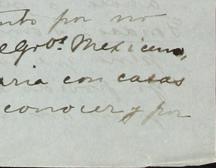 nto por no
egro⁠s Mexicano,
aria con casas
conocer y por